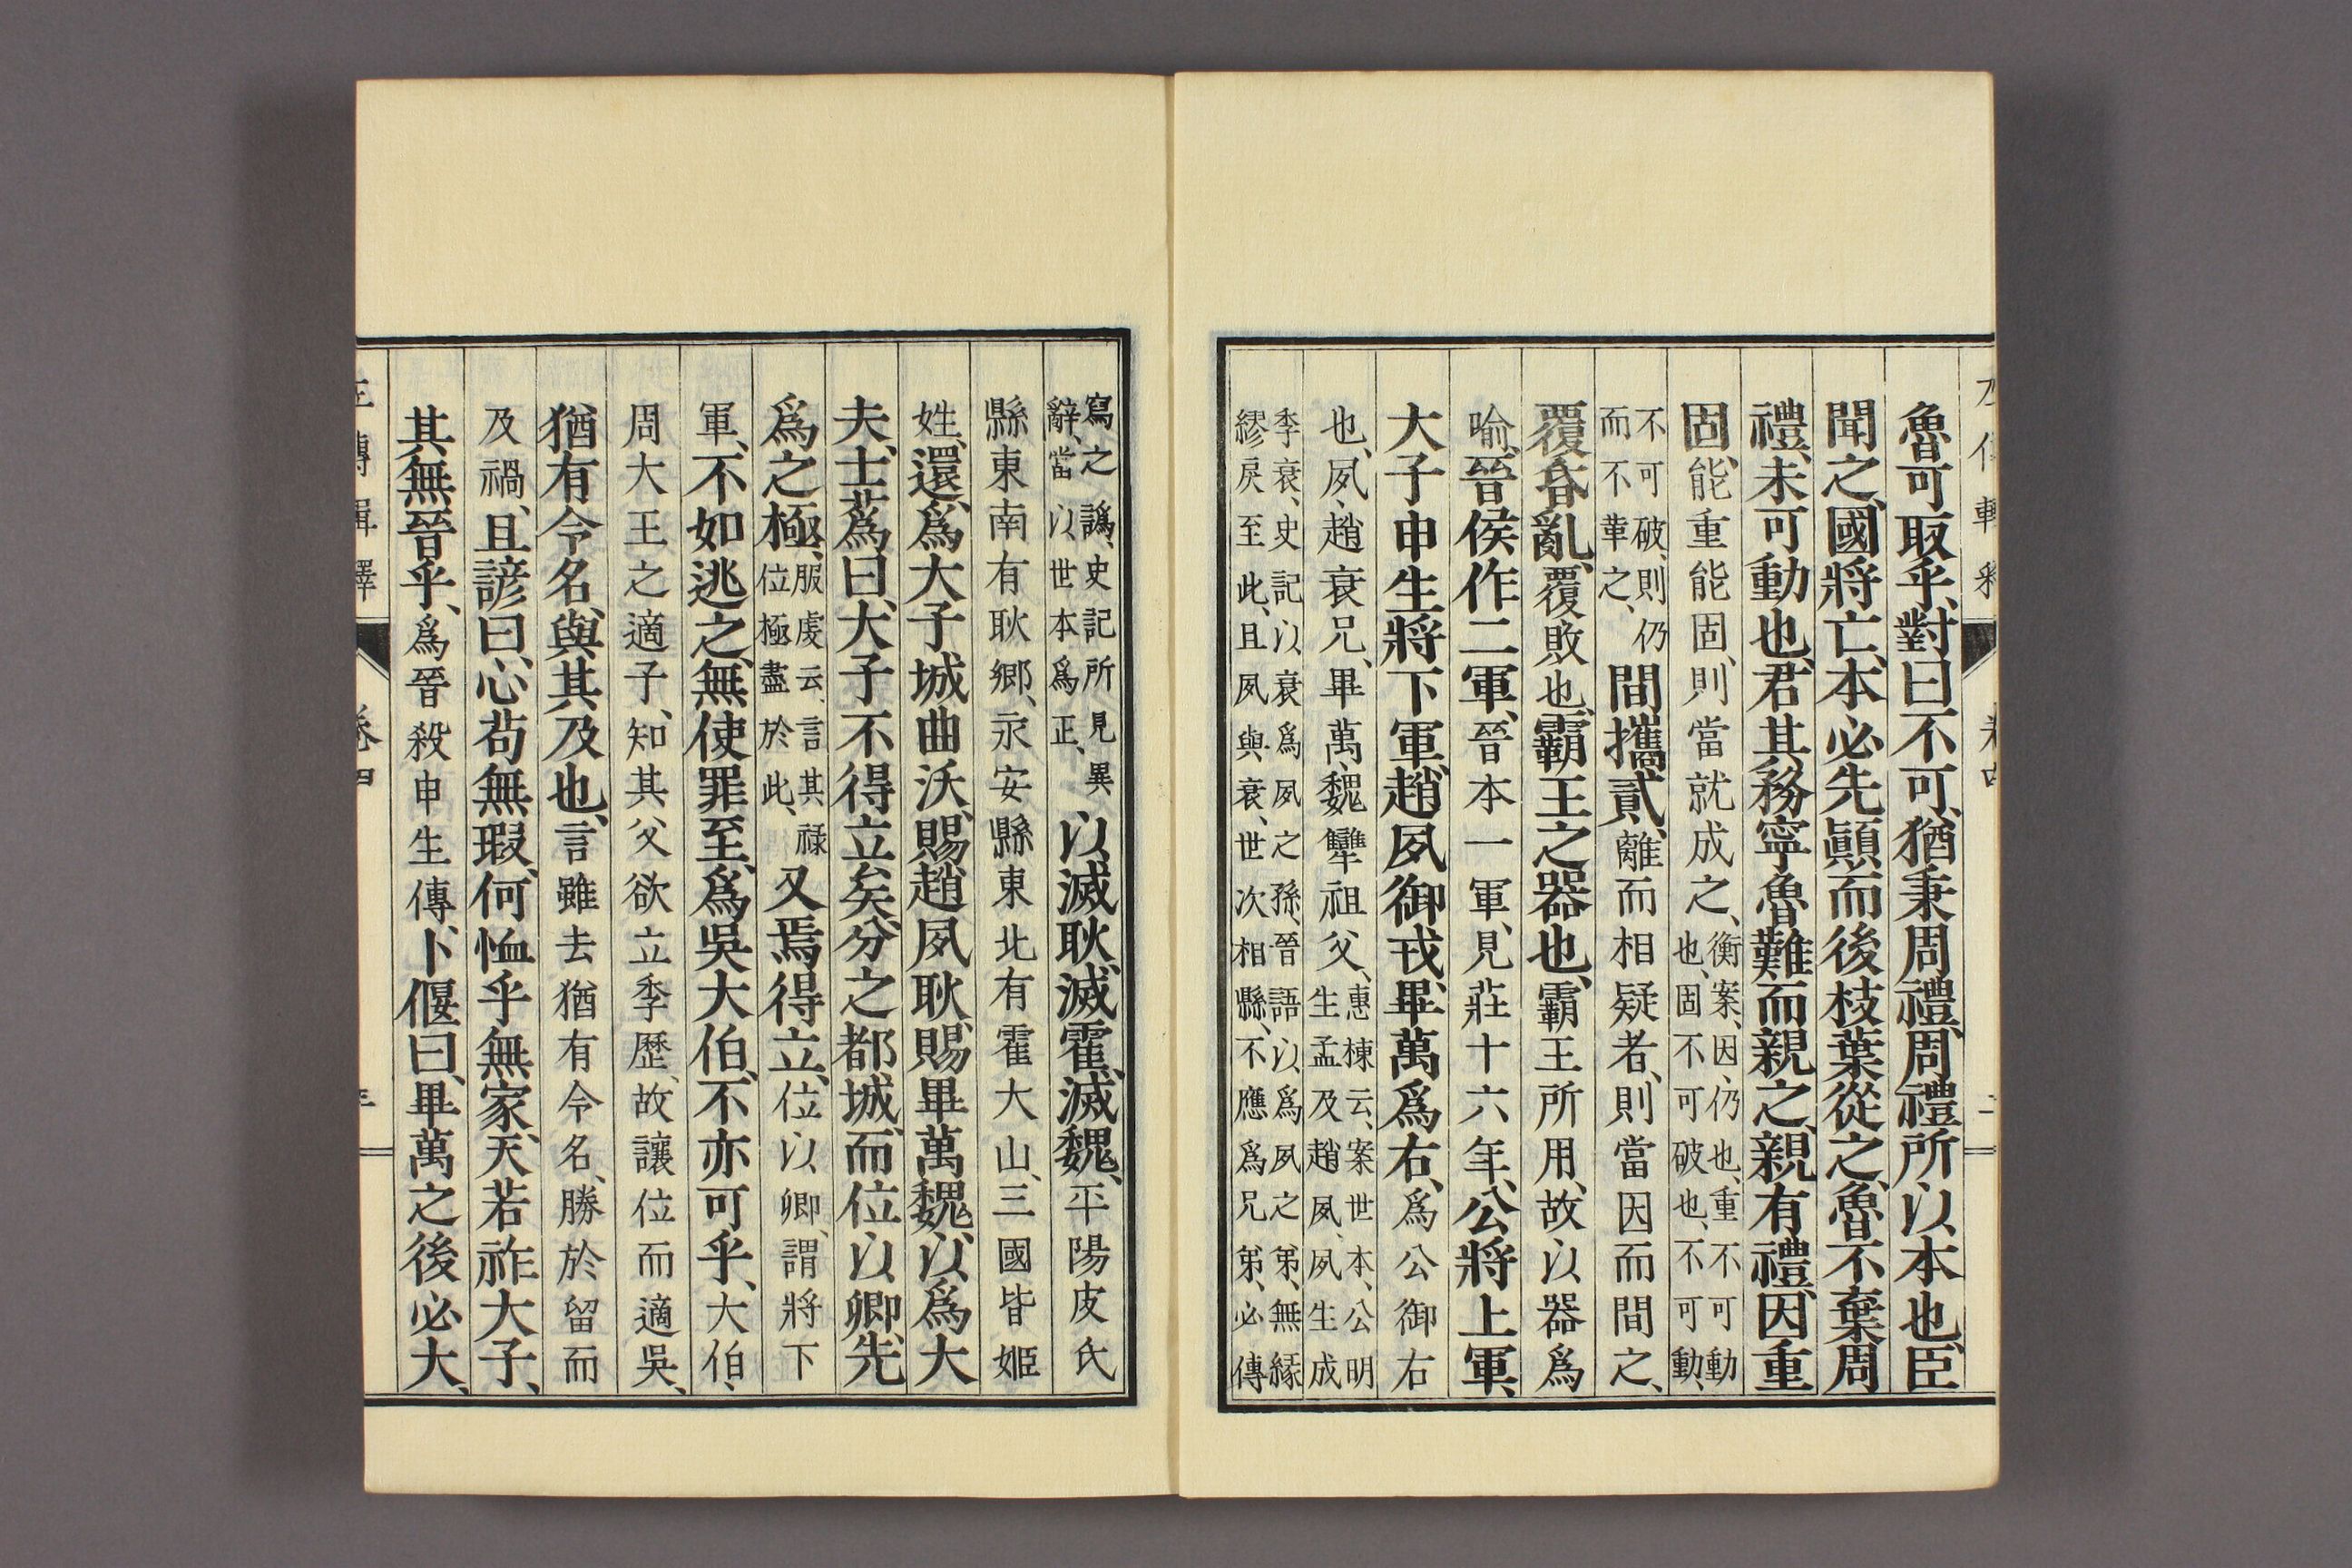 魯可取乎、對曰、不可、猶秉周禮、周禮所以本也、臣
聞之、國將亡、本必先顚、而後枝葉從之、魯不棄周
禮、未可動也、君其務寧魯難而親之、親有禮、因重
固、能重能固、則當就成之、衡案、因、仍也、重不可動
也、固不可破也、不可動、
不可破、則仍
而不革之、間攜貳、離而相疑者、則當因而間之、
覆昏亂、覆敗也、霸王之器也、霸王所用、故以器爲
喻、晉侯作二軍、晉本一軍、見莊十六年、公將上軍、
大子申生將下軍、趙夙御戎、畢萬爲右、爲公御右
也、夙、趙衰兄、畢萬、魏犨祖父、惠棟云、案世本、公明
生孟及趙夙、夙生成
季衰、史記以衰爲夙之孫、晉語以爲夙之弟、無緣
繆戾至此、且夙與衰、世次相縣、不應爲兄弟、必傳
寫之譌、史記所見異
辭、當以世本爲正、以滅耿、滅霍、滅魏、平陽皮氏
縣東南有耿鄉、永安縣東北有霍大山、三國皆姬
姓、還、爲大子城曲沃、賜趙夙耿、賜畢萬魏、以爲大
夫、士蒍曰、大子不得立矣、分之都城、而位以卿、先
爲之極、服虔云、言其祿
位極盡於此、又焉得立、位以卿、謂將下
軍、不如逃之、無使罪至、爲吳大伯、不亦可乎、大伯、
周大王之適子、知其父欲立季歷、故讓位而適吳、
猶有令名、與其及也、言雖去猶有令名、勝於留而
及禍、且諺曰、心苟無瑕、何恤乎無家、天若祚大子、
其無晉乎、爲晉殺申生傳、卜偃曰、畢萬之後必大、
左傳輯釋 卷四